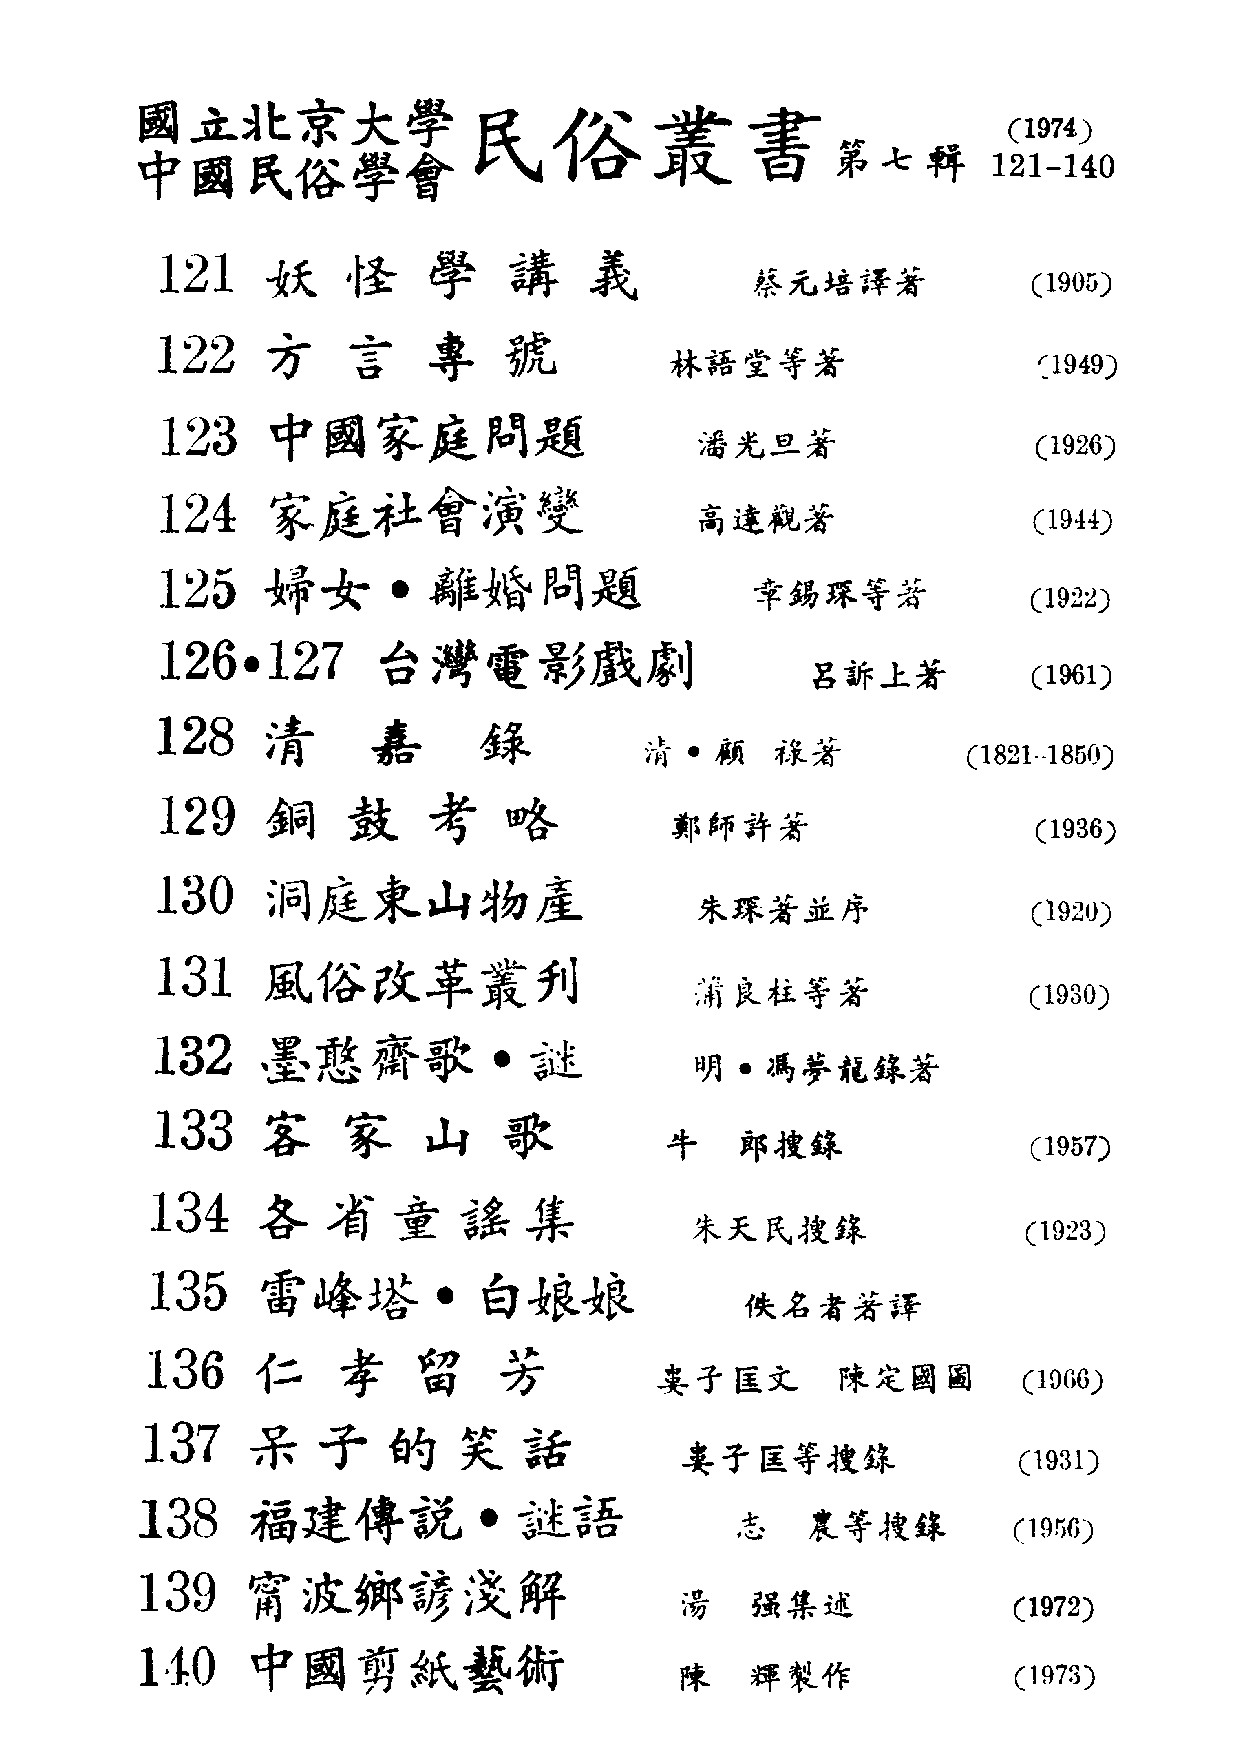 國立北京大學 民俗叢書 (1974)
中國民俗學會 第七輯 121-140
121 妖怪學講義 蔡元培譯著 (1905)
122 方言專號 林語堂等著 (1949)
123 中國家庭問題 潘光旦著 (1926)
124 家庭社會演變 高達觀著 (1944)
125 婦女•離婚問題 幸錫琛等著 (1922)
126•127 台灣電影戲劇 呂訴上著 (1961)
128 清嘉錄 清•顧祿著 (1821-1850)
129 銅鼓考略 鄭師許著 (1936)
130 洞庭東山物產 朱琛著並序 (1920)
131 風俗改革叢刊 蒲良柱等著 (1930)
132 墨憨齋歌•謎 明•馮夢龍錄著
133 客家山歌 牛郎搜錄 (1957)
134 各省童謠集 朱天民搜錄 (1923)
135 雷峰塔•白娘娘 佚名者著譯
136 仁孝留芳 婁子匡文 陳定國圖 (1966)
137 呆子的笑話 婁子匡等搜錄 (1931)
138 福建傳說•謎語 志農等搜錄 (1956)
139 甯波鄉諺淺解 湯强集述 (1972)
140 中國剪紙藝術 陳輝製作 (1973)